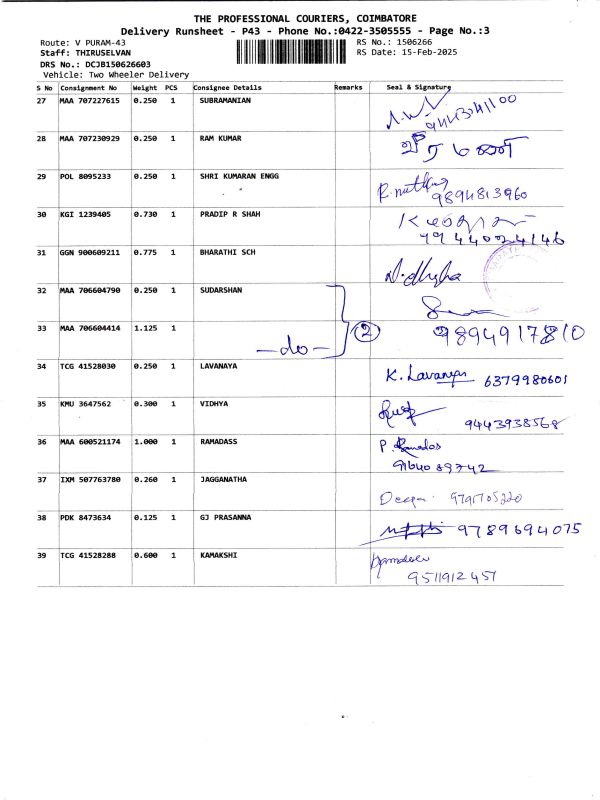 THE PROFESSIONAL COURIERS, COIMBATORE
Delivery Runsheet - P43 - Phone No.:0422-3505555 - Page No.:3
Route: V PURAM-43 RS No.: 1506266
Staff: THIRUSELVAN RS Date: 15-Feb-2025
DRS No.: DCJB150626603
Vehicle: Two Wheeler Delivery
S No Consignment No Weight PCS Consignee Details Remarks Seal & Signature
27 MAA 707227615 0.250 1 SUBRAMANIAN
28 MAA 707230929 0.250 1 RAM KUMAR
29 POL 8095233 0.250 1 SHRI KUMARAN ENGG
9894813960
30 KGI 1239405 0.730 1 PRADIP R SHAH
9944024146
31 GGN 900609211 0.775 1 BHARATHI SCH
32 MAA 706604790 0.250 1 SUDARSHAN
33 MAA 706604414 1.125 1 2 9894917810
-do-
34 TCG 41528030 0.250 1 LAVANAYA K. Lavanya 6379980601
35 KMU 3647562 0.300 1 VIDHYA
9443938568
36 MAA 600521174 1.000 1 RAMADASS
37 IXM 507763780 0.260 1 JAGGANATHA
Deepa 9791705220
38 PDK 8473634 0.125 1 GJ PRASANNA 9789694075
39 TCG 41528288 0.600 1 KAMAKSHI
9511912457